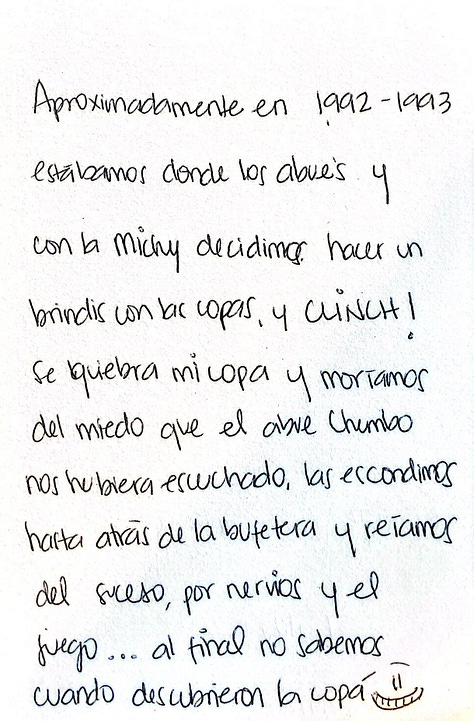 Aproximadamente en 1992-1993
estábamos donde los abue's y
con la Michy decidimos hacer un
brindis con las copas, y CLINCH!
Se quiebra mi copa y moríamos
del miedo que el abue Chumbo
nos hubiera escuchado, las escondimos
hasta atrás de la bufetera y reíamos
del suceso, por nervios y el
juego... al final no sabemos
cuando descubrieron la copa